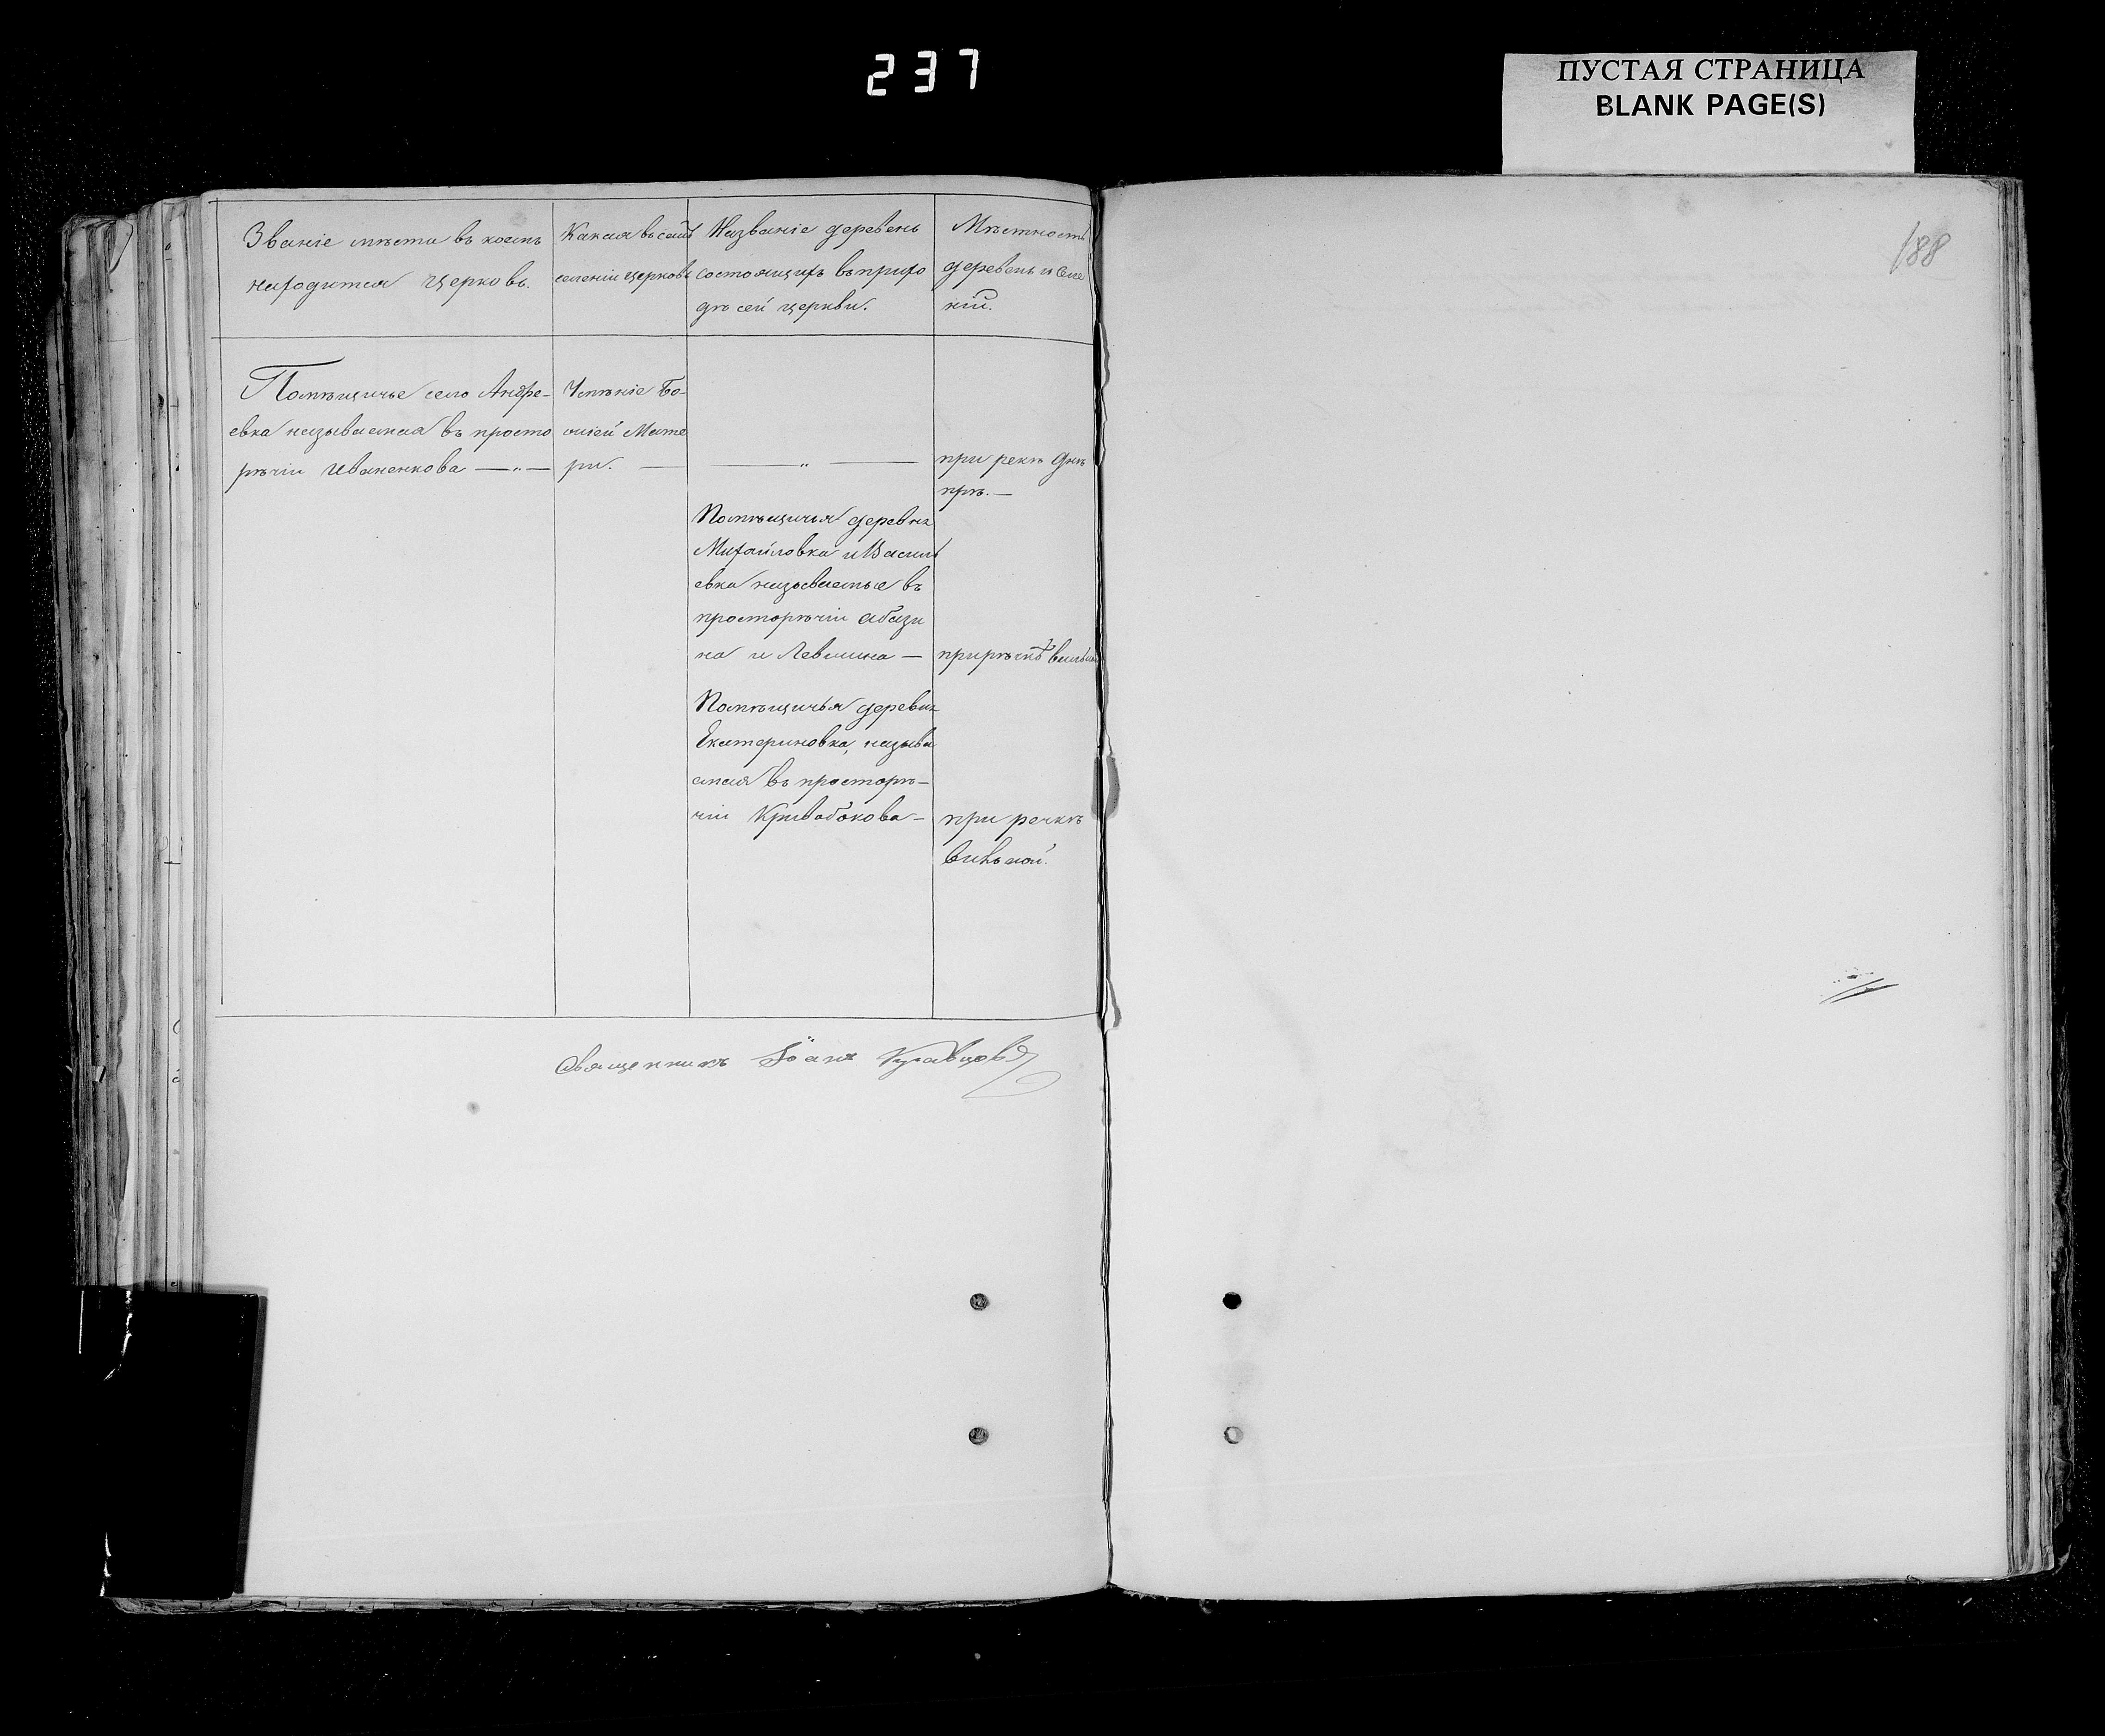 237
ПУСТАЯ СТРАНИЦА
BLANK PAGE(S)
188
Званіе мѣста въ коемъ
находится церковь.
Какая въ семъ
селеніи церковь
Названіе деревень
состоящихъ въ прихо
дѣ сей церкви.
Мѣстность
деревень и селе
ній.
Помѣщичье село Андре-
евка называемая въ просто
рѣчіи Иваненкова —„—
Успѣніе Бо-
жіей Мате
ри. —
— „ —
при рекѣ Днѣ
прѣ. —
Помѣщичья деревня
Михайловка и Василь
евка называемые въ
просторѣчіи Абази
на и Левшина —
при рѣчкѣ
Помѣщичья деревня
Екатериновка, называ
емая въ просторѣ-
чіи Кривобокова —
при речкѣ
Вильной.
Священникъ Іоаннъ Кравцовъ